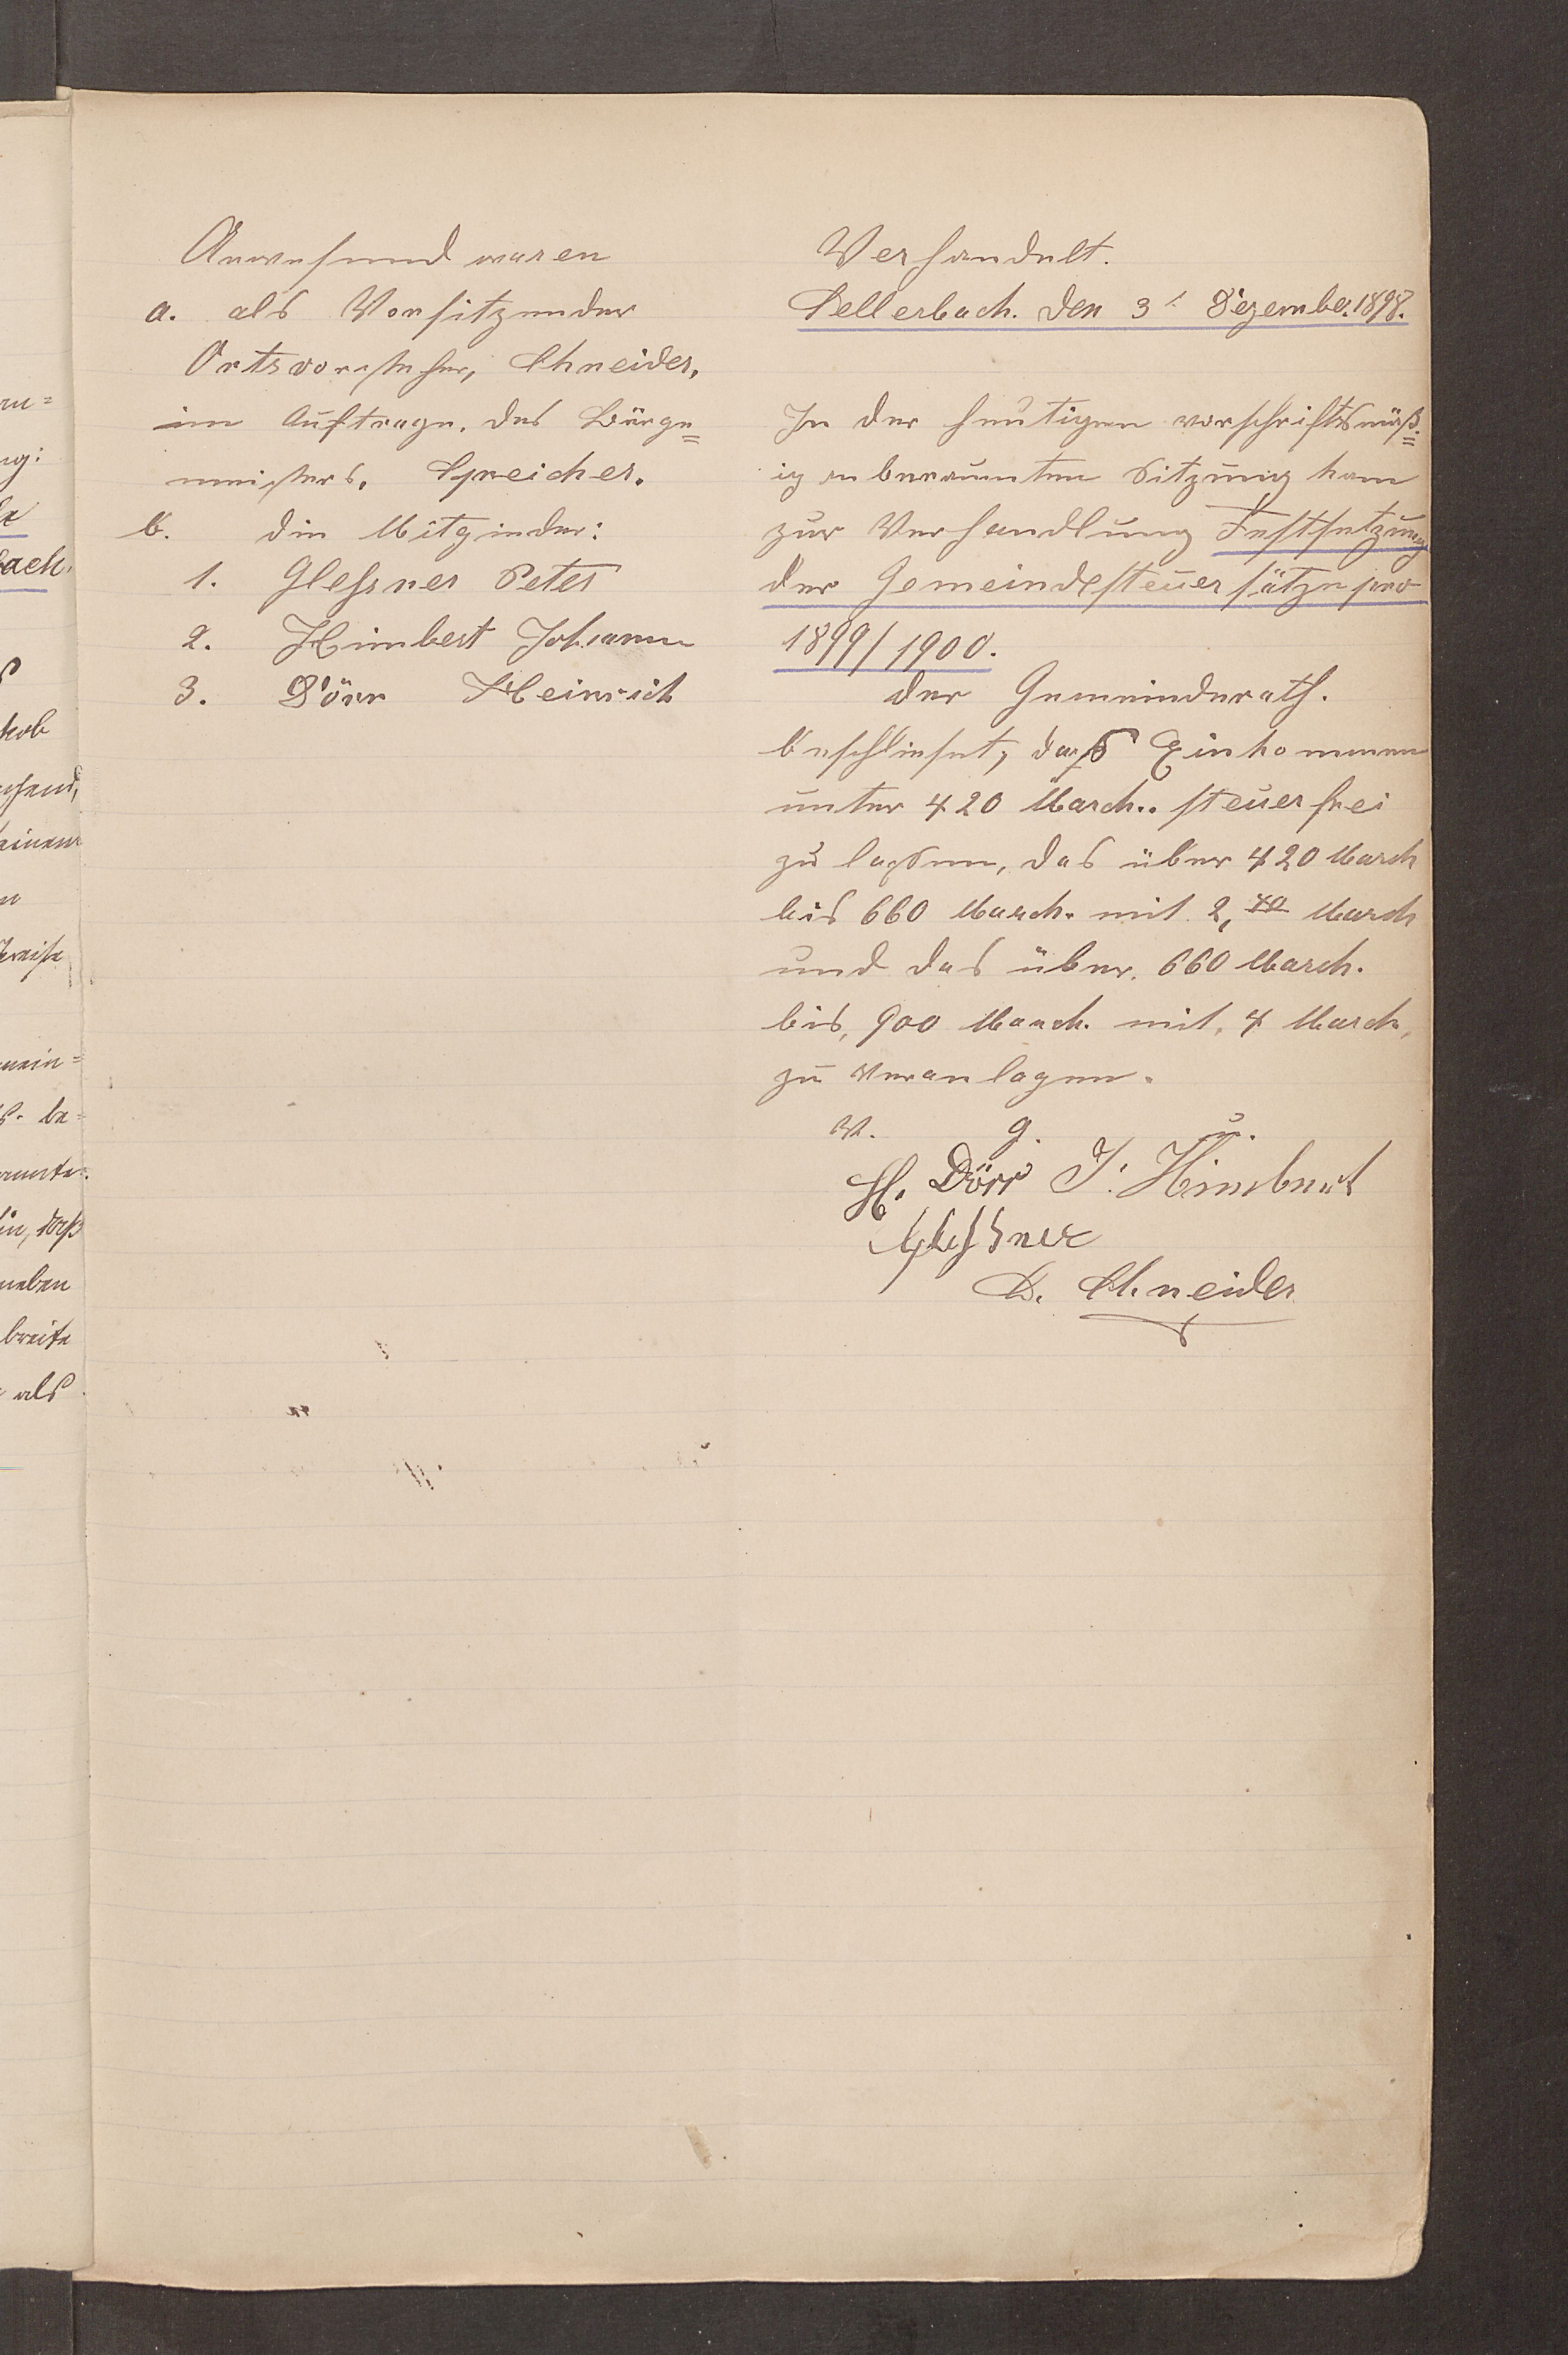 Anwesend waren
a. als Vorsitzender
Ortsvorsteher, Schneider,
im Auftrage. des Bürge=
meisters. Speicher.
b. die Mitglieder:
1. Glessner Peter
2. Himbert Johann
3. Dörr Heinrich
Verhandelt.
Sellerbach. den 3t Dezember. 1898.
In der heutigen vorschriftsmäß=
ig anberaumten Sitzung kam
zur Verhandlung Festsetzung
der Gemeindesteuersätze pro
1899/1900.
der Gemeinderath.
beschlieset, daß Einkommen
unter 420 Marck.. steuerfrei
zu lassen, das über 420 Marck
bis 660 Marck. mit 2,40 Marck
und das über. 660 Marck.
bis, 900 Marck. mit, 4 Marck,
zu veranlagen.
v. g. u.
H. Dörr J. Himbert
Glessner
D. Schneider